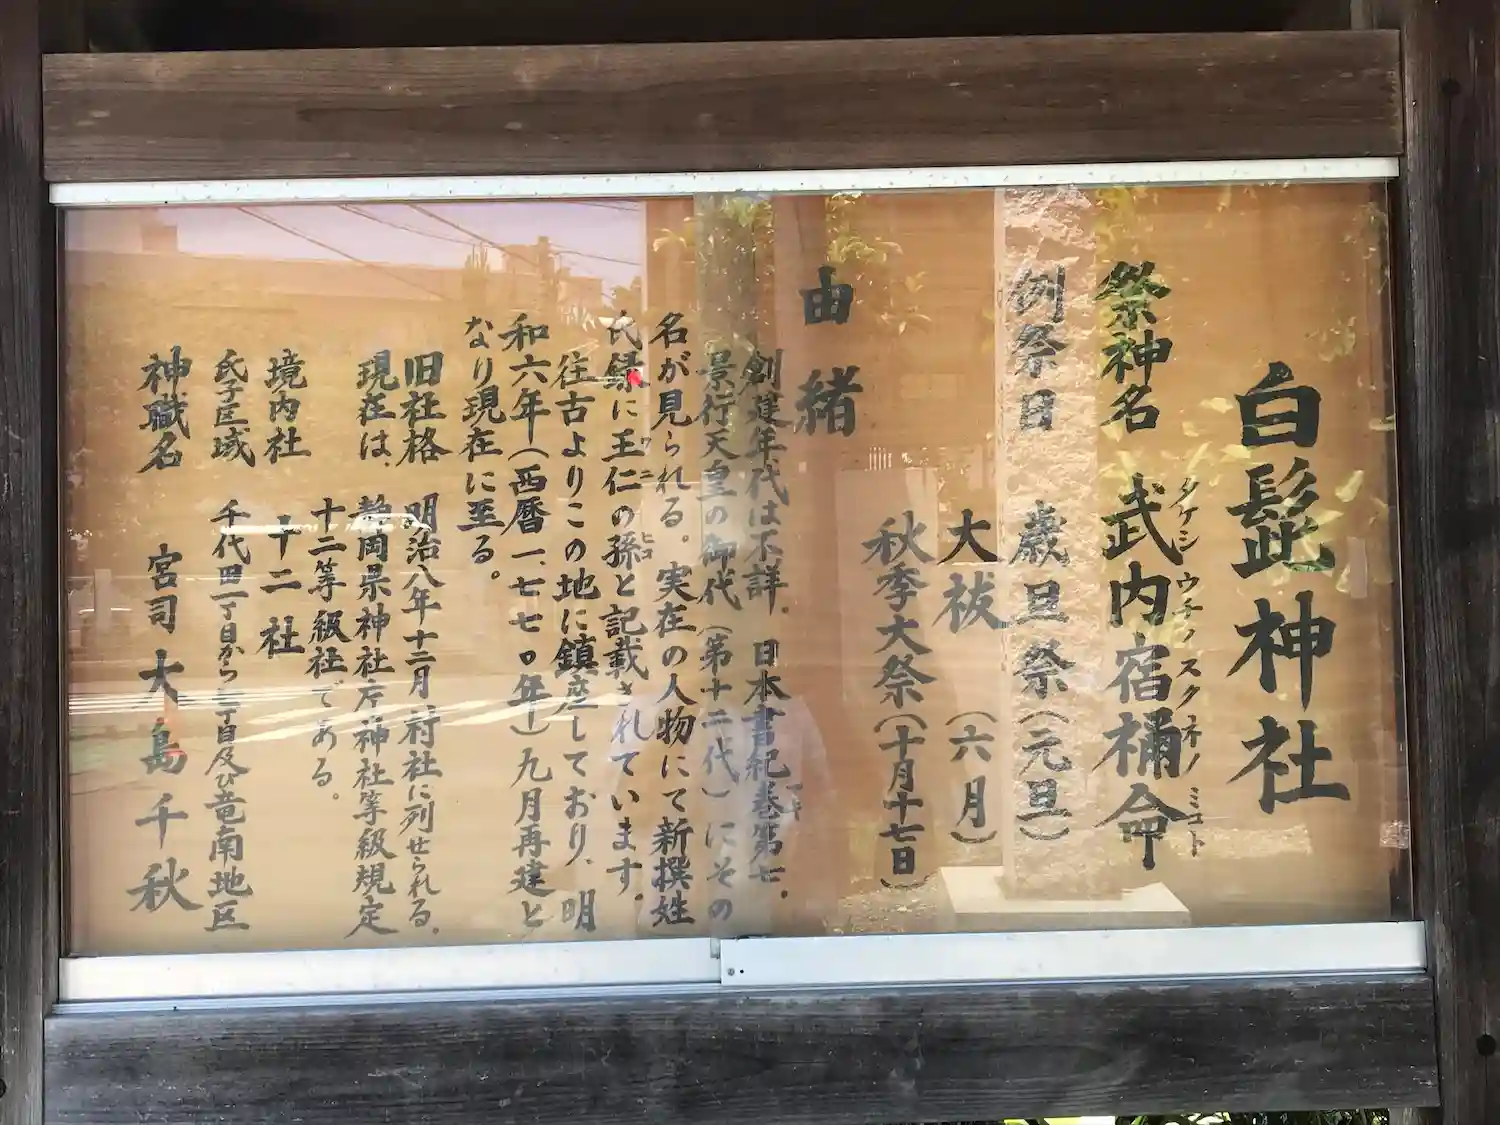 白髭神社
祭神名 武内宿禰命
タケシ ウチノ スクネノ ミコト
例祭日 歳旦祭(元旦)
大祓 (六月)
秋季大祭(十月十七日)
由緒
創建年代は不詳。日本書紀巻第七、
景行天皇の御代(第十二代)にその
名が見られる。実在の人物にて新撰姓
氏録に王仁の孫と記載されています。
ワニ ヒコ
往古よりこの地に鎮座しており、明
和六年(西暦一、七七〇年)九月再建と
なり現在に至る。
旧社格 明治八年十二月 村社に列せられる。
現在は、静岡県神社庁神社等級規定
十二等級社である。
境内社 十二社
氏子区域 千代田一丁目から三丁目及び竜南地区
神職名 宮司 大島千秋